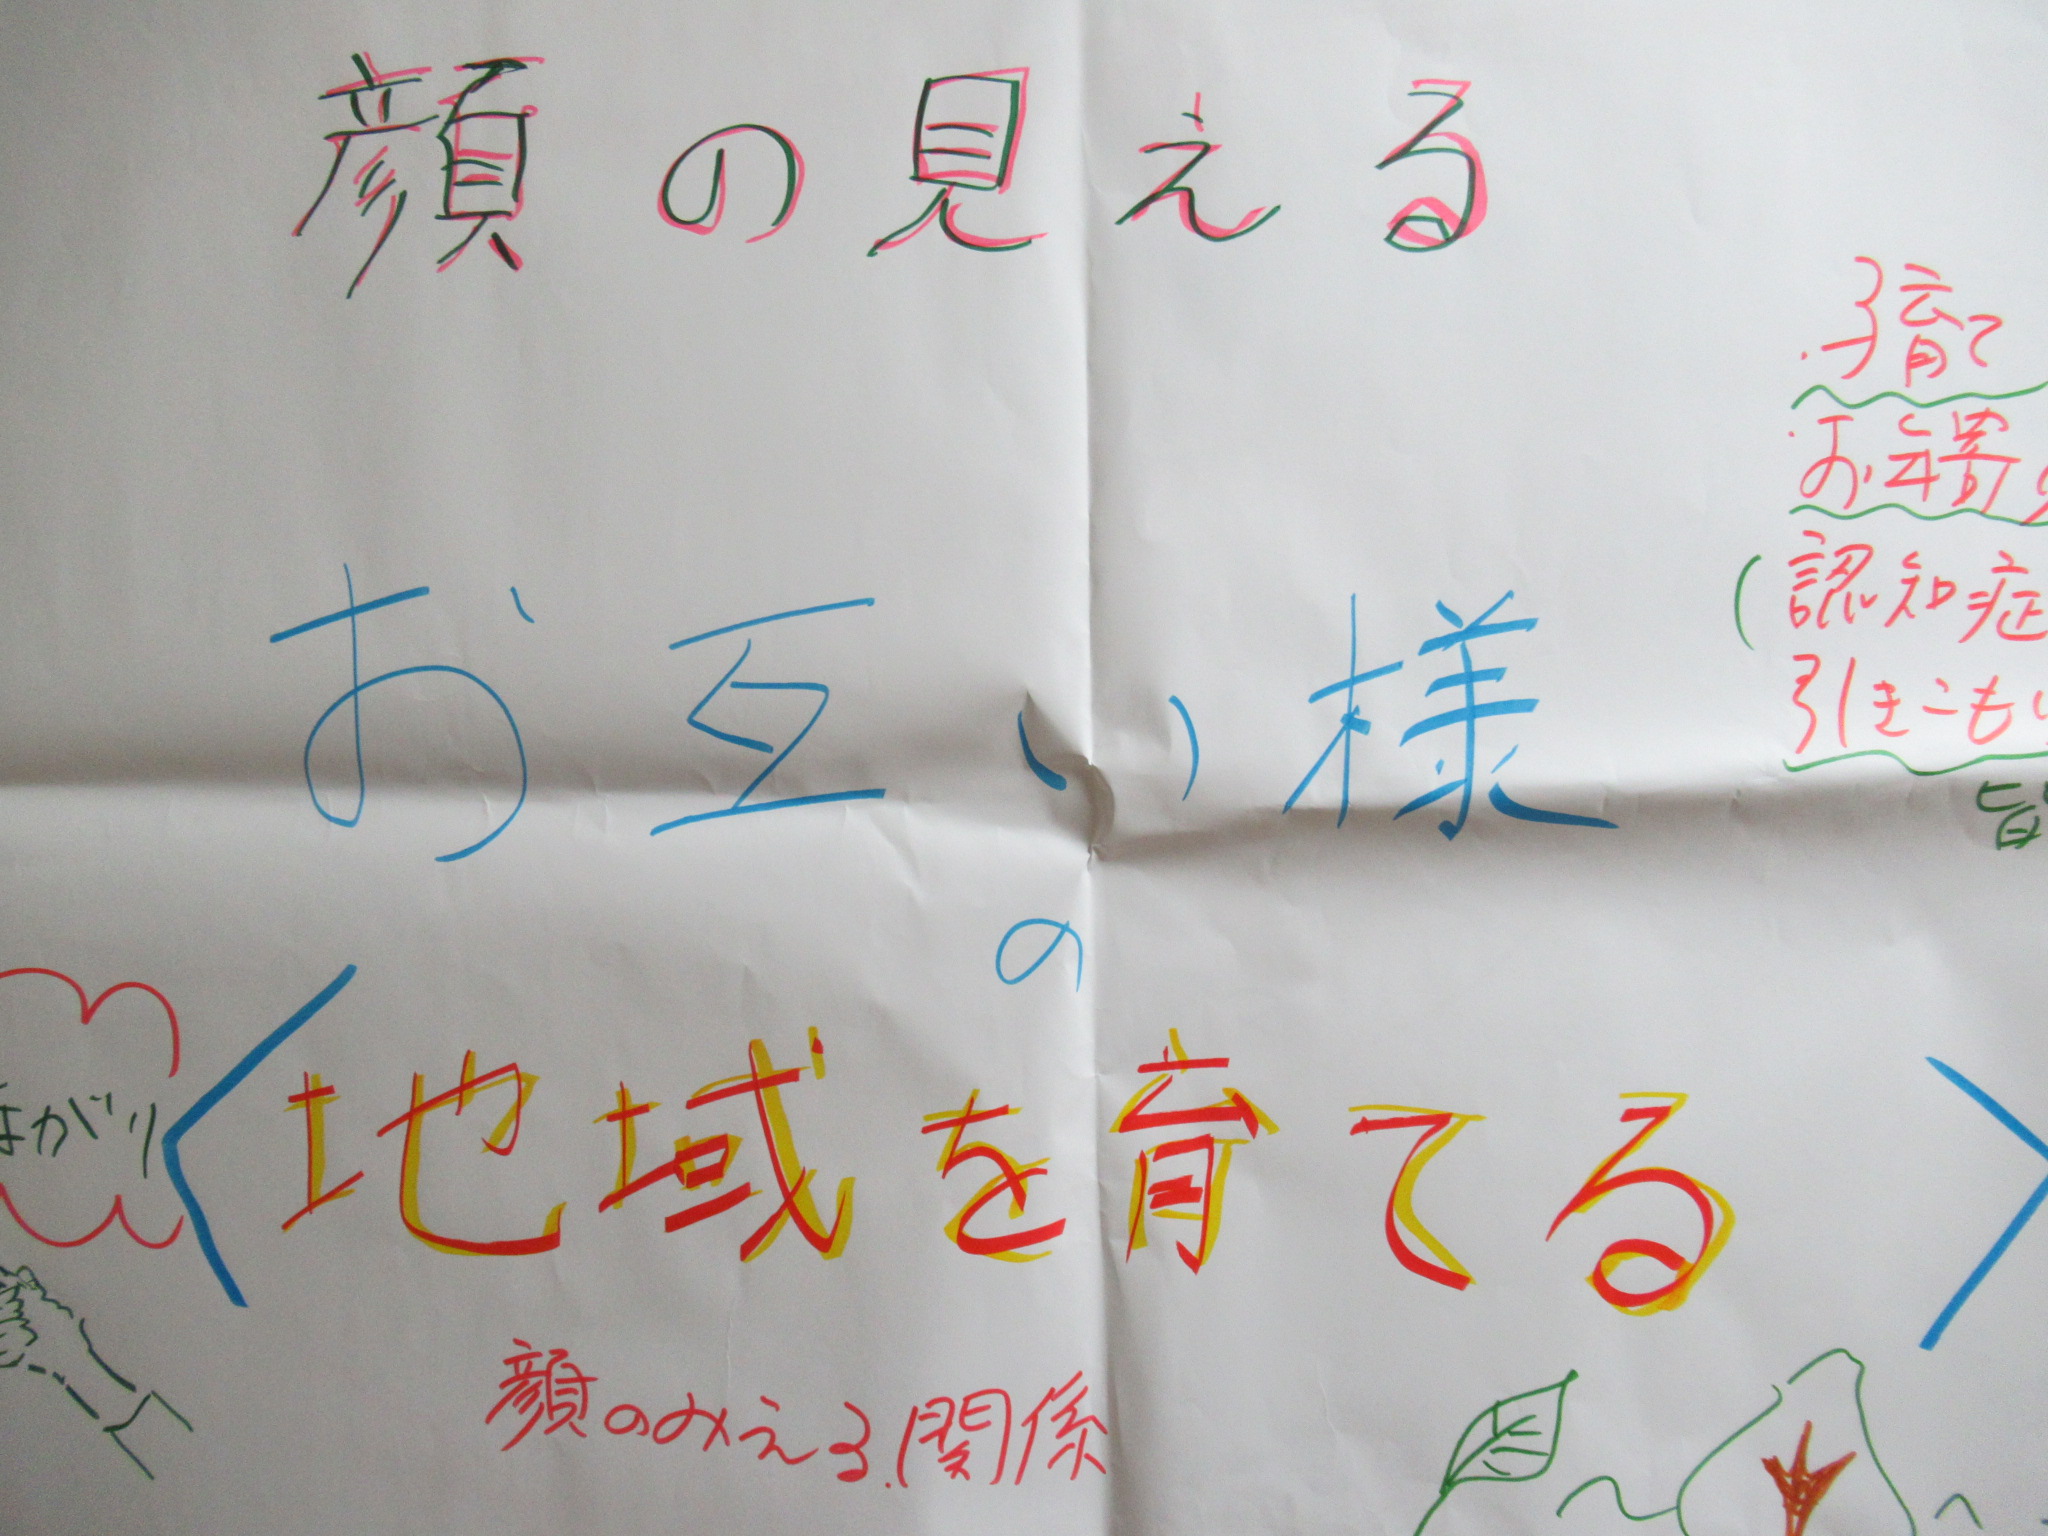 顔の見える
お互い様
の
〈地域を育てる〉
顔のみえる関係
・子育て
・お年寄り
(認知症
引きこもり
皆
ながり